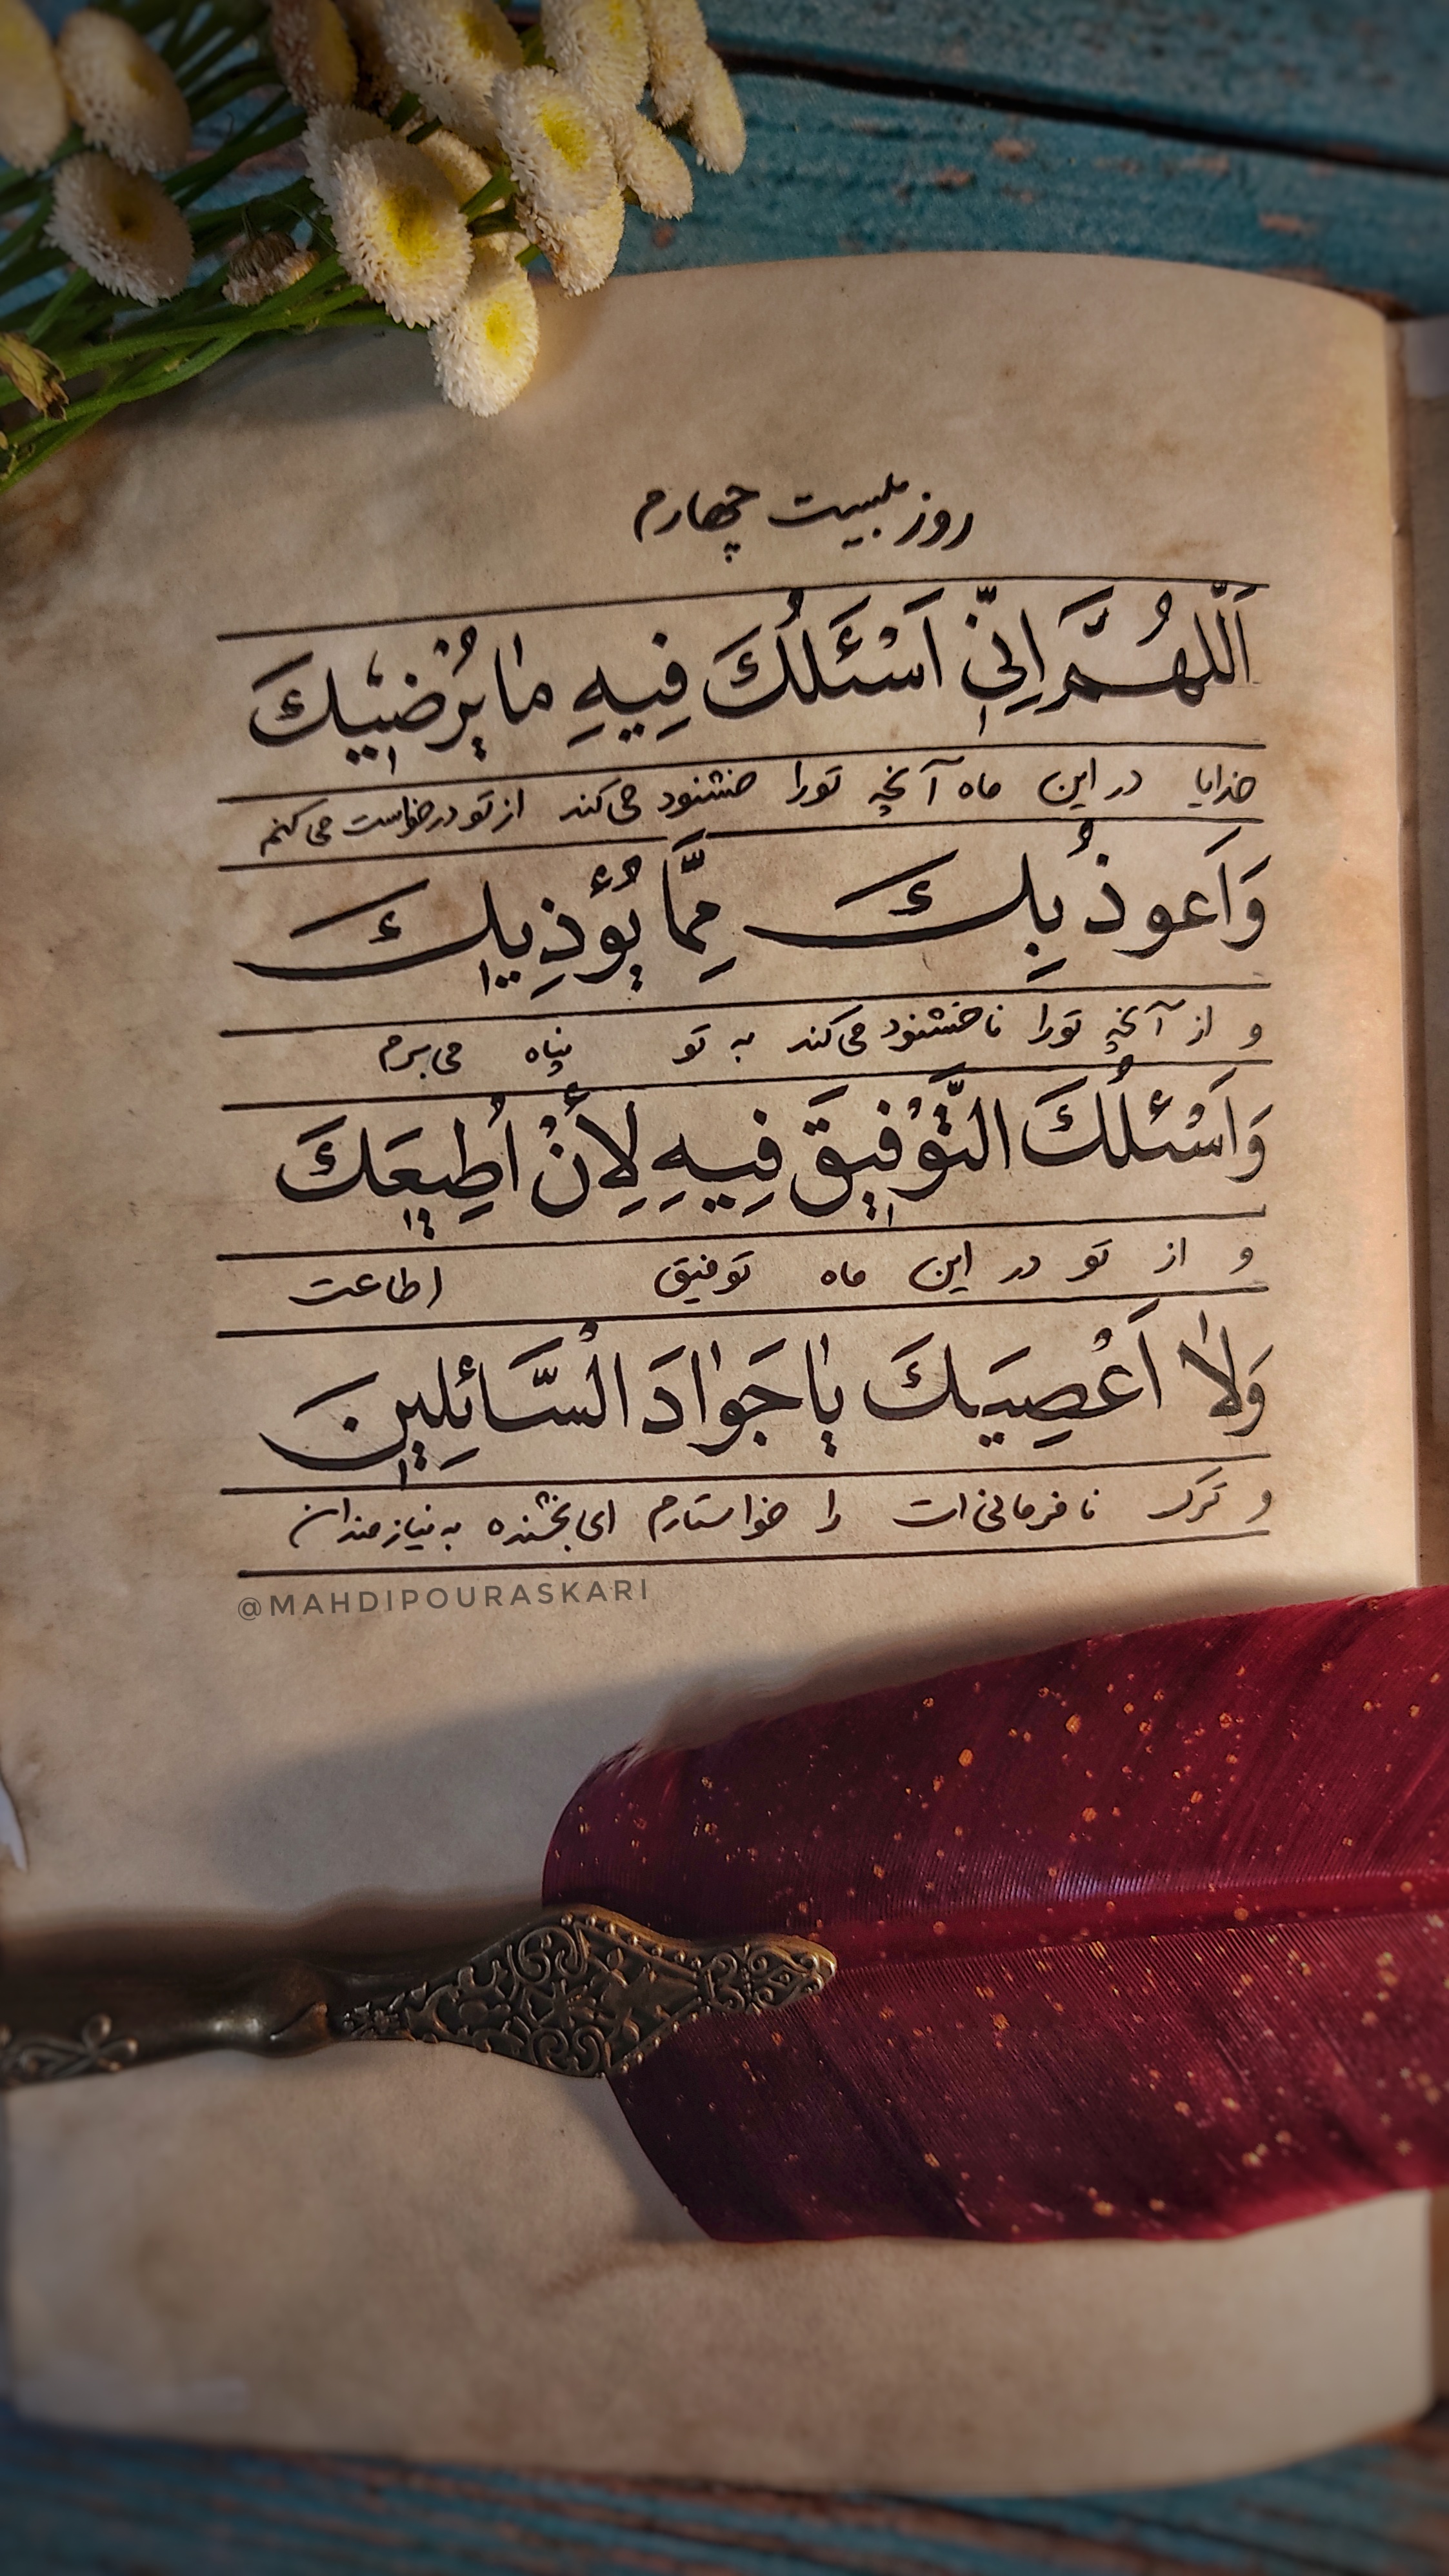 روز بیست چهارم
اَللّهُمَّ اِنّیِ اَسْئَلُكَ فِیهِ مٰا یُرْضیٖكَ
خدایا در این ماه آنچه تورا خشنود می‌کند از تو درخواست می‌کنم
وَاَعوذُ بِكَ مِمَّا یُؤذِیكَ
و از آنچه تورا ناخشنود می‌کند به تو پناه می‌برم
وَاَسْئَلُكَ التَّوْفیٖقَ فِیهِ لِأَنْ اُطِیعَكَ
و از تو در این ماه توفیق اطاعت
وَلاٰ اَعْصِیَكَ یٰا جَوٰادَ الْسَّائِلِینَ
و ترک نافرمانی‌ات را خواستارم ای بخشنده به نیازمندان
@MAHDIPOURASKARI